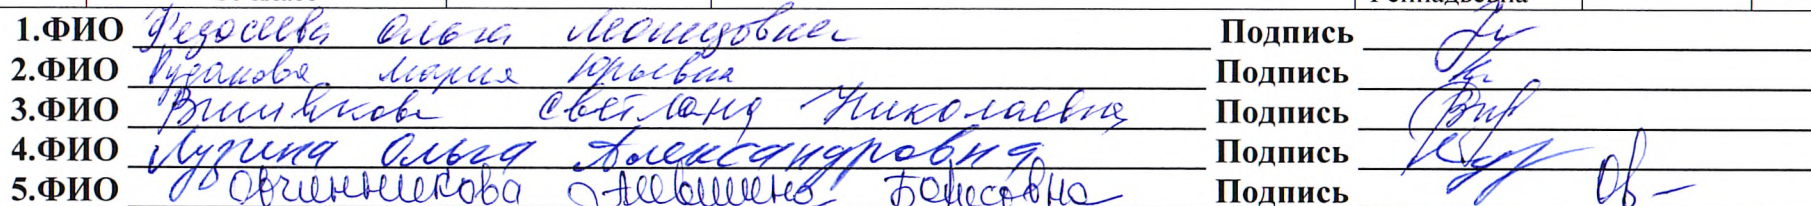 Геннадьевна
1.ФИО Федосеева Ольга Леонидовна Подпись
2.ФИО Рудакова Мария Юрьевна Подпись
3.ФИО Вишнякова Светлана Николаевна Подпись
4.ФИО Лузина Ольга Александровна Подпись
5.ФИО Овчинникова Борисовна Подпись